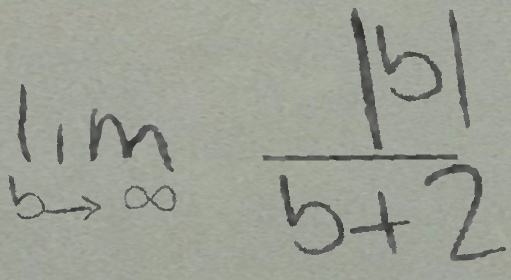 lim_{b→∞} |b|/(b+2)